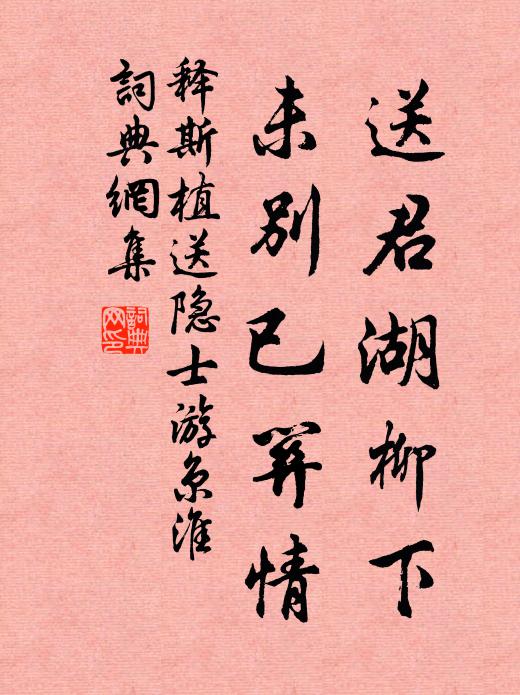 送君湖柳下
未别已关情
释斯植送隐士游京淮
詞典網集
詞典
网印